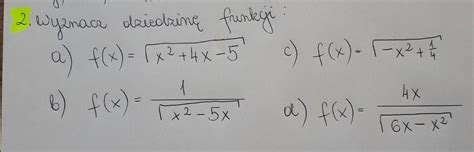 2. Wyznacz dziedzinę funkcji:
a) f(x) = √(x² + 4x - 5)
c) f(x) = √(-x² + 1/4)
b) f(x) = 1/√(x² - 5x)
d) f(x) = 4x/√(6x - x²)